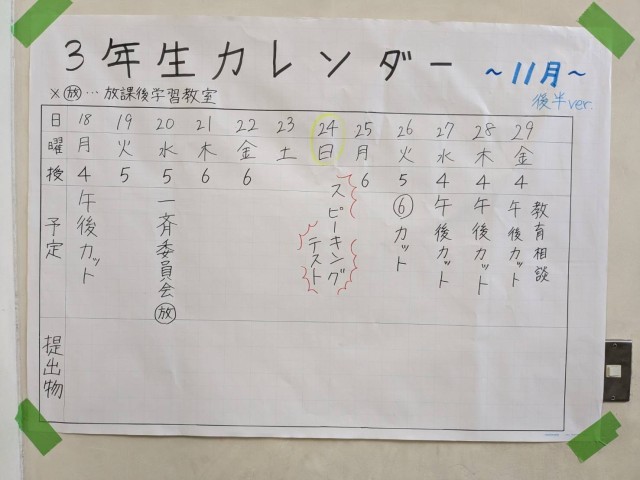 3年生カレンダー ~11月~
後半ver.
×放…放課後学習教室
日 18 19 20 21 22 23 24 25 26 27 28 29
曜 月 火 水 木 金 土 日 月 火 水 木 金
授 4 5 5 6 6 6 5 4 4 4
予定
午後カット
一斉委員会 放
スピーキング
テスト
⑥カット
午後カット
午後カット
教育相談
午後カット
提出物